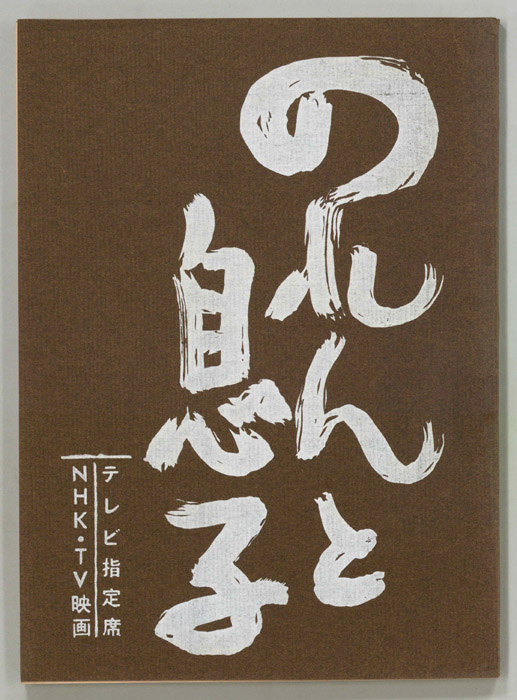 のれんと
息子
テレビ指定席
NHK・TV映画